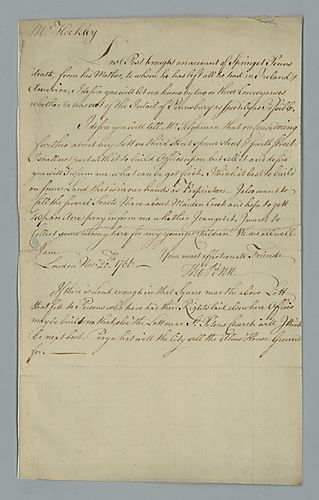 Mr. Hockley
Last Post brought an account of Springet Penns
death, from his Mother, to whom he has left all he had in Ireland &
America, I desire you will let me know by two or three Conveyances
whether he was of the Intail of Pennsbury as speedily as Possible.
I desire you will tell Mr. that on considering
further about my Lott on third Street Spruce Street & fourth Street
I shall not part with it to build Offices upon but sell it and desire
you will inform me what can be got for it. I think it best to build
on some Land that is in our hands as Proprietors. I also want to
sell the several Tracts I have about Maiden Creek and hope to gett
pr Acre pray inform me whether I can get it. I want to
Collect some money here for my younger Children. We are all well
I am Your most affectionate Friend
London Novr. 20th. 1766 — Tho Penn.
If there is Land enough in that Square near the above Lott
that fell to Persons who have had their Rights laid elsewhere Offices
may be built on that, else the Lott near St. Peters Church will I think
be next best. Pray what will the City sell the Alms House Ground
for. —